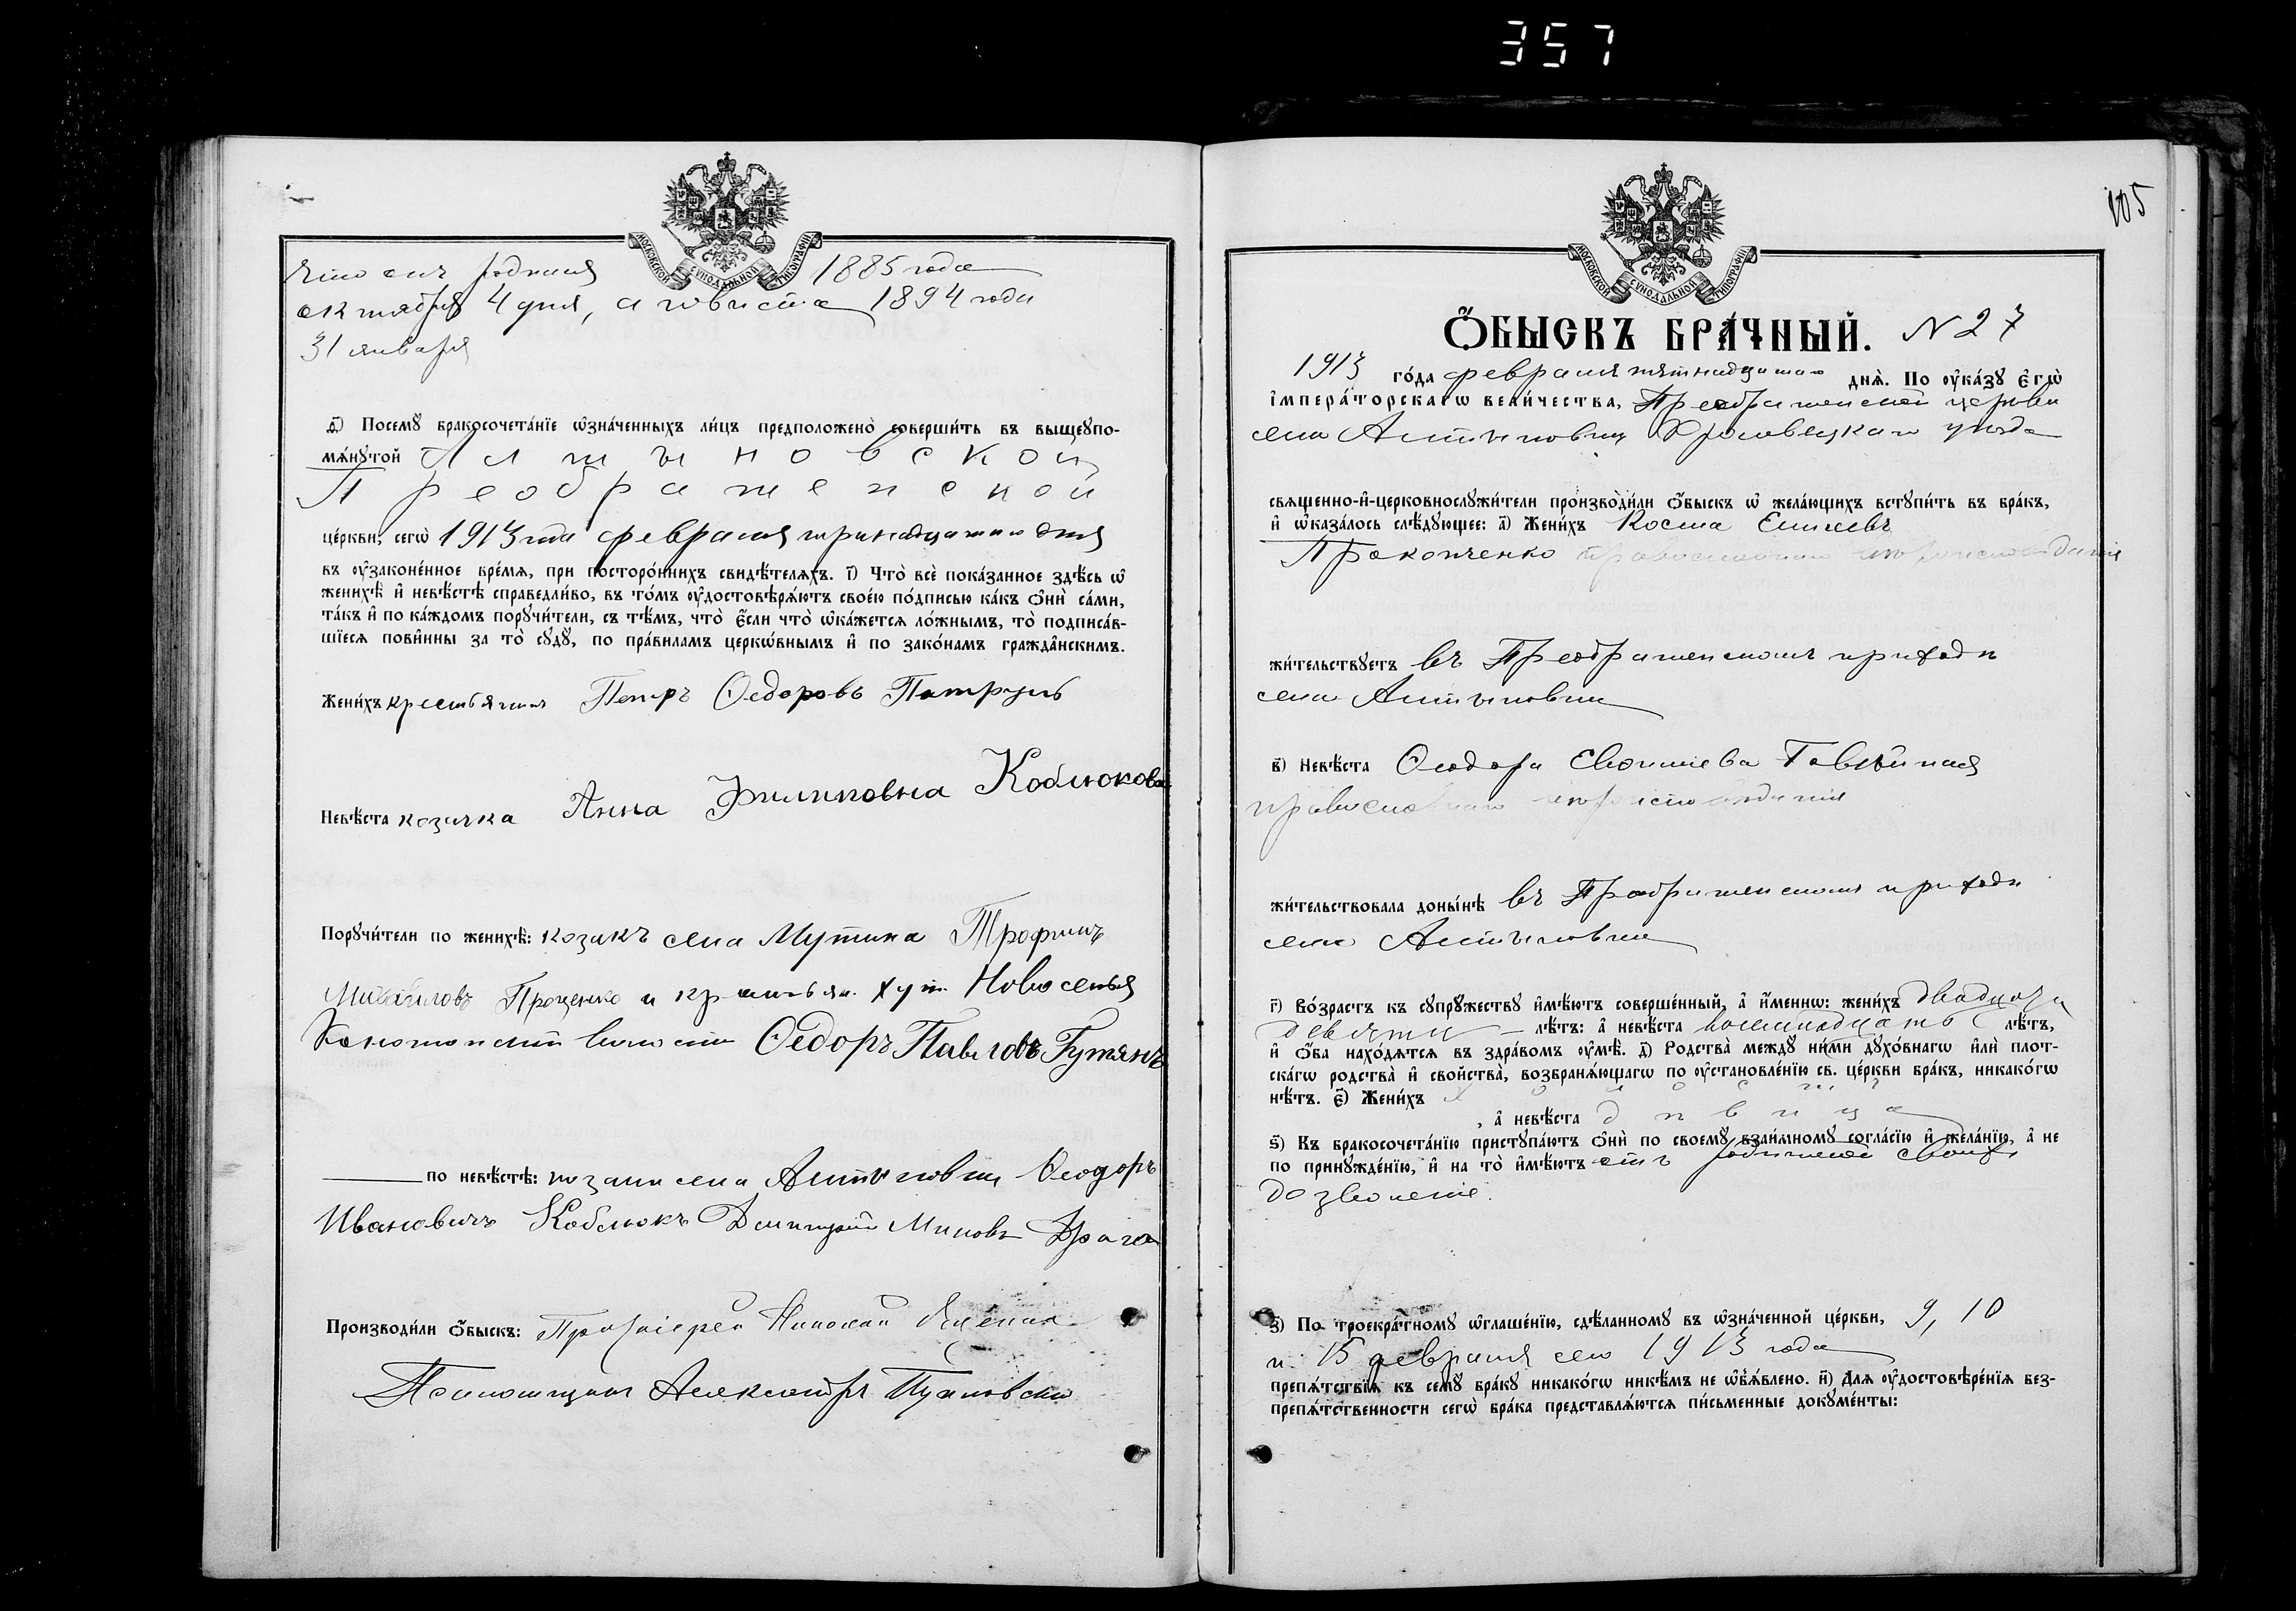 357
МОСКОВСКОЙ СУНОДАЛЬНОЙ ТИПОГРАФІИ
что онъ родился 1885 года
октября 4 дня, а невѣста 1894 года
31 января
д҃) Посемꙋ бракосочета́нїе ѡ҆зна́ченныхъ ли́цъ предположено̀ соверши́ть въ вышеꙋпо-
мѧ́нꙋтой Алтыновской
Преображенской
це́ркви, сегѡ̀ 1913 года февраля тринадцатаго дня
въ ᲂу҆зако́ненное вре́мѧ, при посторо́ннихъ свидѣ́телѧхъ. і҃) Что̀ всѐ пока́занное здѣ́сь ѡ҆
женихѣ̀ и҆ невѣ́стѣ справедли́во, въ то́мъ ᲂу҆достовѣрѧ́ютъ свое́ю по́дписью ка́къ ѻ҆нѝ са́ми,
та́къ и҆ по ка́ждомъ порꙋчи́тели, съ тѣ́мъ, что̀ є҆́сли что̀ ѡ҆ка́жетсѧ ло́жнымъ, то̀ подписа́в-
шїесѧ пови́нны за то̀ сꙋдꙋ̀, по пра́виламъ церкѡ́внымъ и҆ по зако́намъ гражда́нскимъ.
Жени́хъ крестьянинъ Петръ Ѳедоровъ Патруль
Невѣ́ста козачка Анна Филиповна Коблюкова
Порꙋчи́тели по женихѣ̀: козакъ села Мутина Трофимъ
Михайловъ Проценко и крестьян. хут. Новоселья
Конотопской волости Ѳедоръ Павловъ Гутянъ
по невѣ́стѣ: козаки села Алтыновки Ѳеодоръ
Ивановичъ Коблюкъ Димитрій Миновъ Драга
Производи́ли ѻ҆́быскъ: Протоіерей Николай
Псаломщикъ Александръ
105
МОСКОВСКОЙ СУНОДАЛЬНОЙ ТИПОГРАФІИ
Ѻ҆́БЫСКЪ БРА́ЧНЫЙ. N 27
1913 го́да февраля пятнадцатаго днѧ̀. По ᲂу҆ка́зꙋ є҆гѡ̀
і҆мпера́торскагѡ вели́чества, Преображенской церкви
села Алтыновки Кролевецкаго уѣзда
свѧщенно-и҆-церковнослꙋжи́тели производи́ли ѻ҆́быскъ ѡ҆ жела́ющихъ встꙋпи́ть въ бра́къ,
и҆ ѡ҆каза́лось слѣ́дꙋющее: а҃) Жени́хъ Косма
Прокопченко православнаго вѣроисповѣданія
жи́тельствꙋетъ въ Преображенскомъ приходѣ
села Алтыновки
в҃) Невѣ́ста Ѳеодора
православнаго вѣроисповѣданія
жи́тельствовала доны́нѣ въ Преображенскомъ приходѣ
села Алтыновки
г҃) Во́зрастъ къ сꙋпрꙋ́жествꙋ и҆мѣ́ютъ соверше́нный, а҆ и҆́менно: жени́хъ двадцати
девяти лѣ́тъ: а҆ невѣ́ста восемнадцать лѣ́тъ,
и҆ ѻ҆́ба нахо́дѧтсѧ въ здра́вомъ ᲂу҆мѣ̀. д҃) Родства̀ междꙋ̀ ни́ми дꙋхо́внагѡ и҆лѝ плот-
ска́гѡ родства̀ и҆ сво́йства̀, возбранѧ́ющагѡ по ᲂу҆становле́нїю св. це́ркви бра́къ, никако́гѡ
нѣ́тъ. є҃) Жени́хъ холостъ
, а҆ невѣ́ста дѣвица
ѕ҃) Къ бракосочета́нїю пристꙋпа́ютъ ѻ҆нѝ по своемꙋ̀ взаи́мномꙋ согла́сїю и҆ жела́нїю, а҆ не
по принꙋжде́нїю, и҆ на то̀ и҆мѣ́ютъ отъ родителей своихъ
дозволеніе.
з҃) По троекра́тномꙋ ѡ҆глаше́нїю, сдѣ́ланномꙋ въ ѡ҆зна́ченной це́ркви, 9, 10
и 15 февраля сего 1913 года
препѧ́тствїѧ къ семꙋ̀ бра́кꙋ никако́гѡ никѣ́мъ не ѡ҆б̾ѧ́влено. и҃) Длѧ ᲂу҆достовѣре́нїѧ без-
препѧ́тственности сегѡ̀ бра́ка представлѧ́ютсѧ пи́сьменные докꙋме́нты: